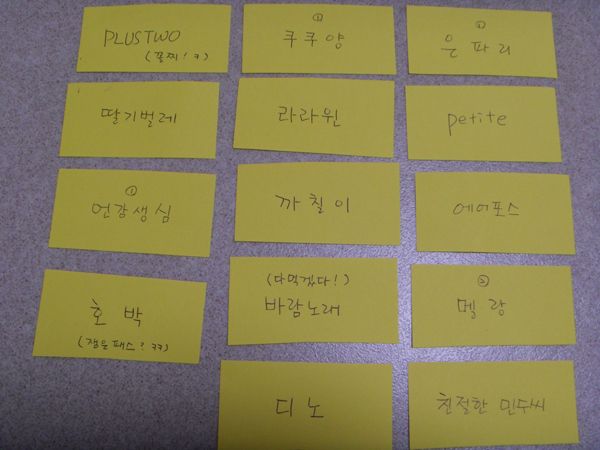 PLUSTWO
(꼴찌! ㅋ)
①
쿠쿠양
②
은파리
딸기벌레
라라윈
petite
①
언감생심
까칠이
에어포스
호박
(잼은 패스? ㅋㅋ)
(다먹겠다!)
바람노래
②
멜랑
디노
친절한 민수씨